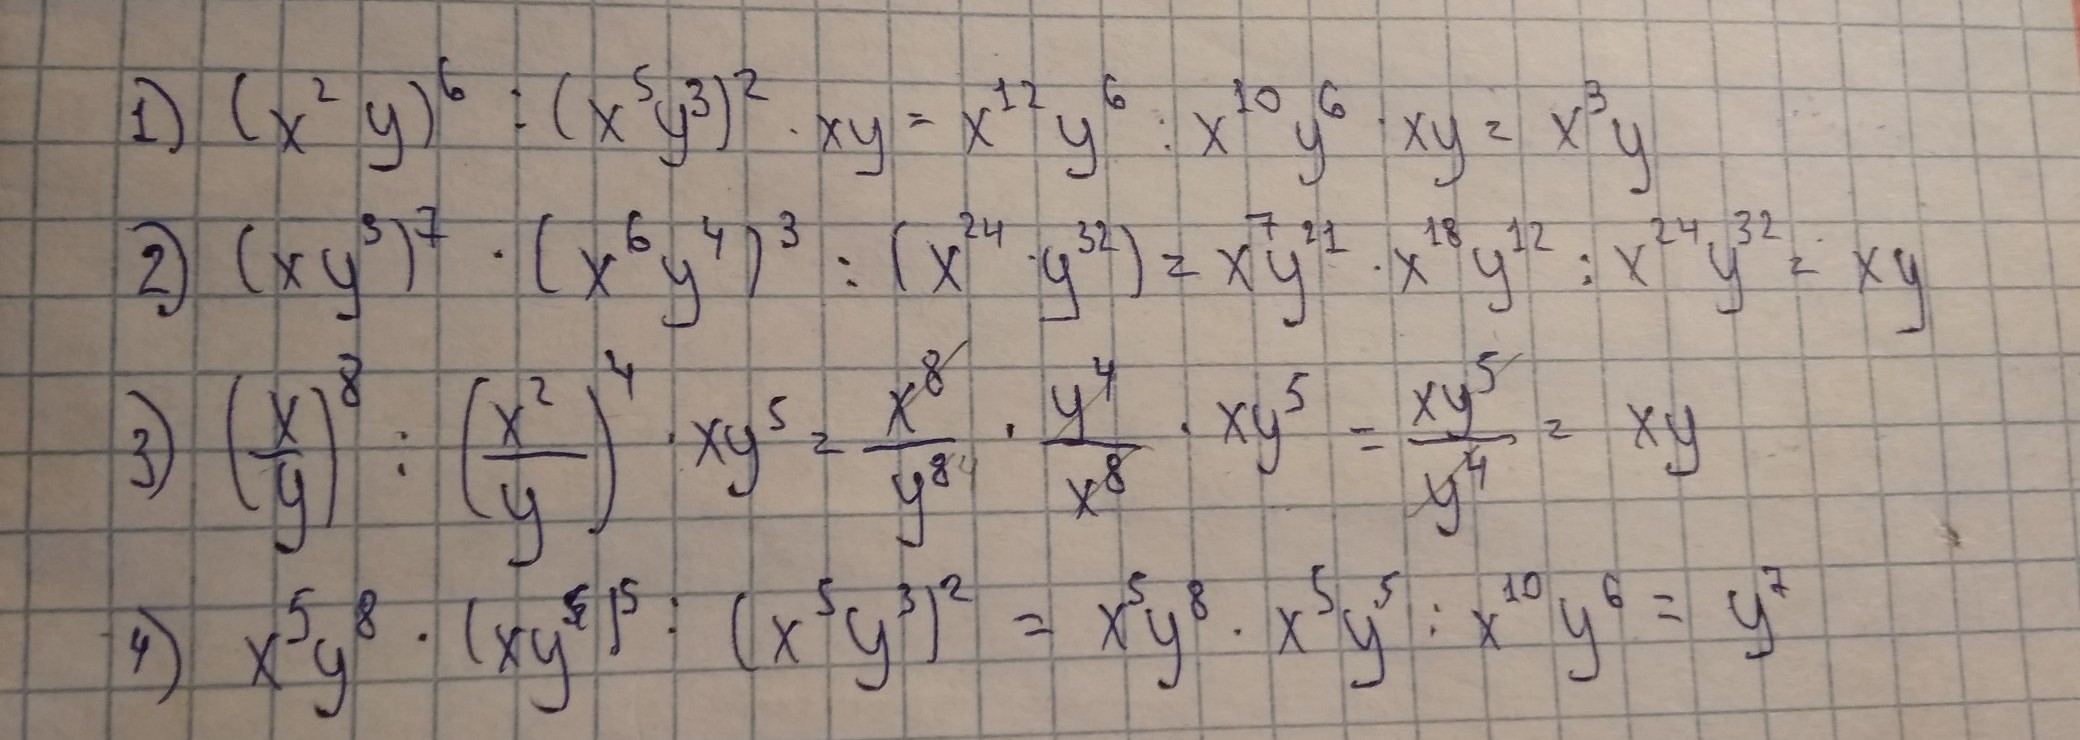 1) (x² y)⁶ : (x⁵y³)² · xy = x¹²y⁶ : x¹⁰y⁶ · xy = x³y
2) (xy³)⁷ · (x⁶y⁴)³ : (x²⁴·y³²) = x⁷y²¹ · x¹⁸y¹² : x²⁴y³² = xy
3) (x/y)⁸ : (x²/y)⁴ · xy⁵ = x⁸/y⁸ ⁴ · y⁴/x⁸ · xy⁵ = xy⁵/y⁴ = xy
4) x⁵y⁸ · (xy⁵)⁵ : (x⁵y³)² = x⁵y⁸ · x⁵y⁵ : x¹⁰y⁶ = y⁷